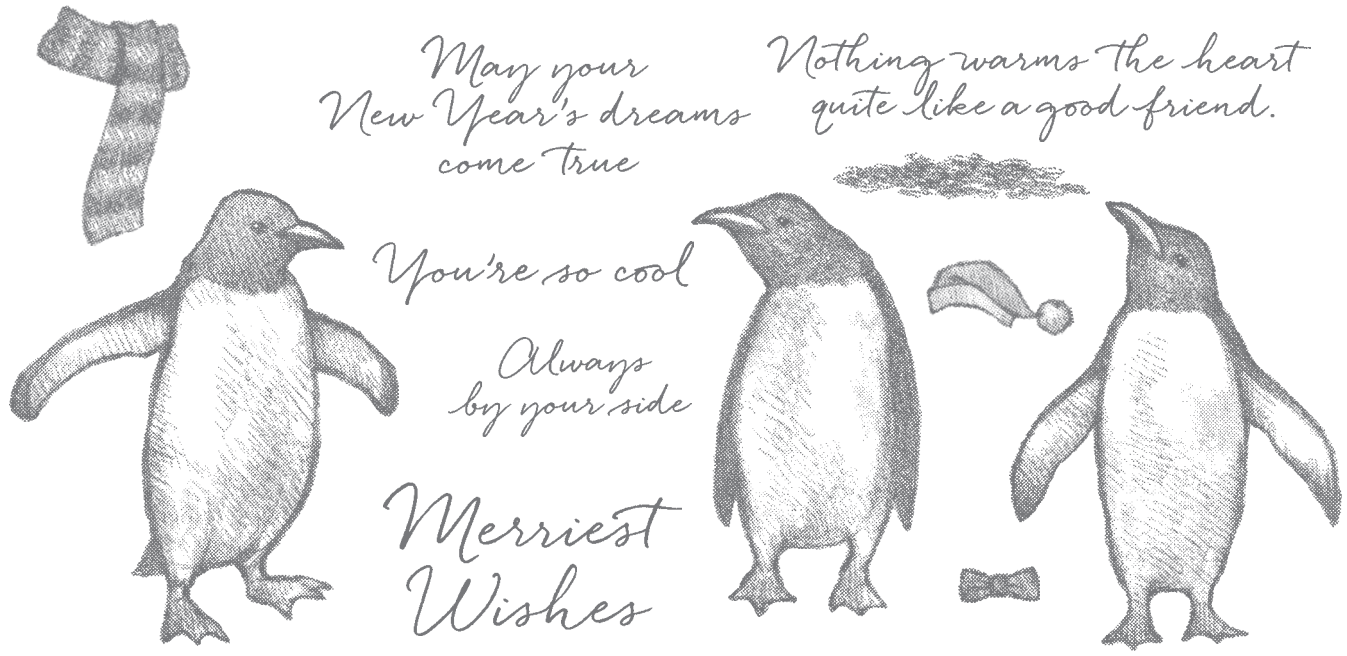 May your
New Year's dreams
come true
Nothing warms the heart
quite like a good friend.
You're so cool
Always
by your side
Merriest
Wishes